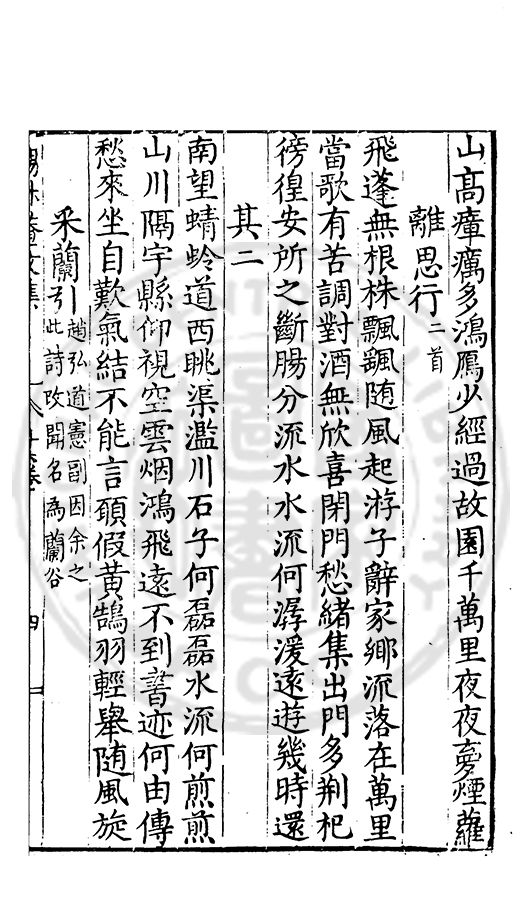 山髙瘴癘多鴻鴈少經過故園千萬里夜夜夢煙蘿
離思行二首
飛蓬無根株飄颻随風起游子辭家鄉流落在萬里
當歌有苦調對酒無欣喜閉門愁緒集出門多荆杞
徬徨安所之斷腸分流水水流何潺湲遠遊幾時還
其二
南望蜻蛉道西眺渠濫川石子何磊磊水流何煎煎
山川隔宇縣仰視空雲烟鴻飛遠不到書迹何由傳
愁來坐自歎氣結不能言願假黃鵠羽輕舉随風旋
采蘭引趙弘道憲副因余之
此詩改閣名為蘭谷
四